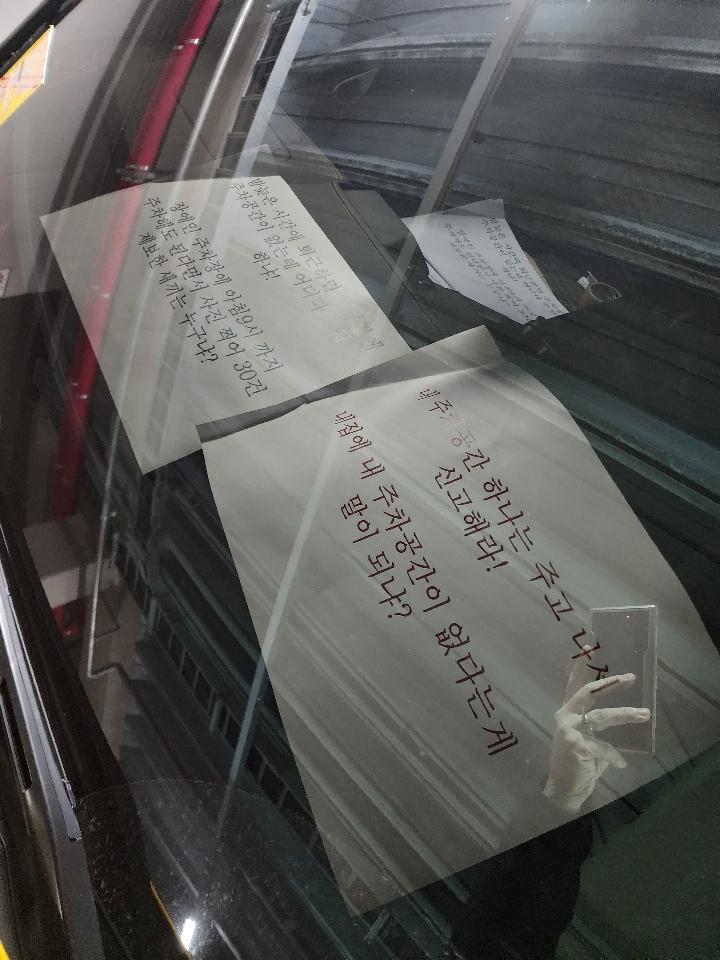 밤늦은 시간에 퇴근하면
주차공간이 없는데 어디다
하냐!
장애인 주차장에 아침9시 까지
주차해도 된다면서 사진 찍어 30건
제보한 새끼는 누구냐?
내 주차공간 하나는 주고 나서
신고해라!
내집에 내 주차공간이 없다는게
말이 되냐?